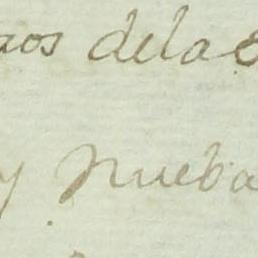 aos delas
y nueba